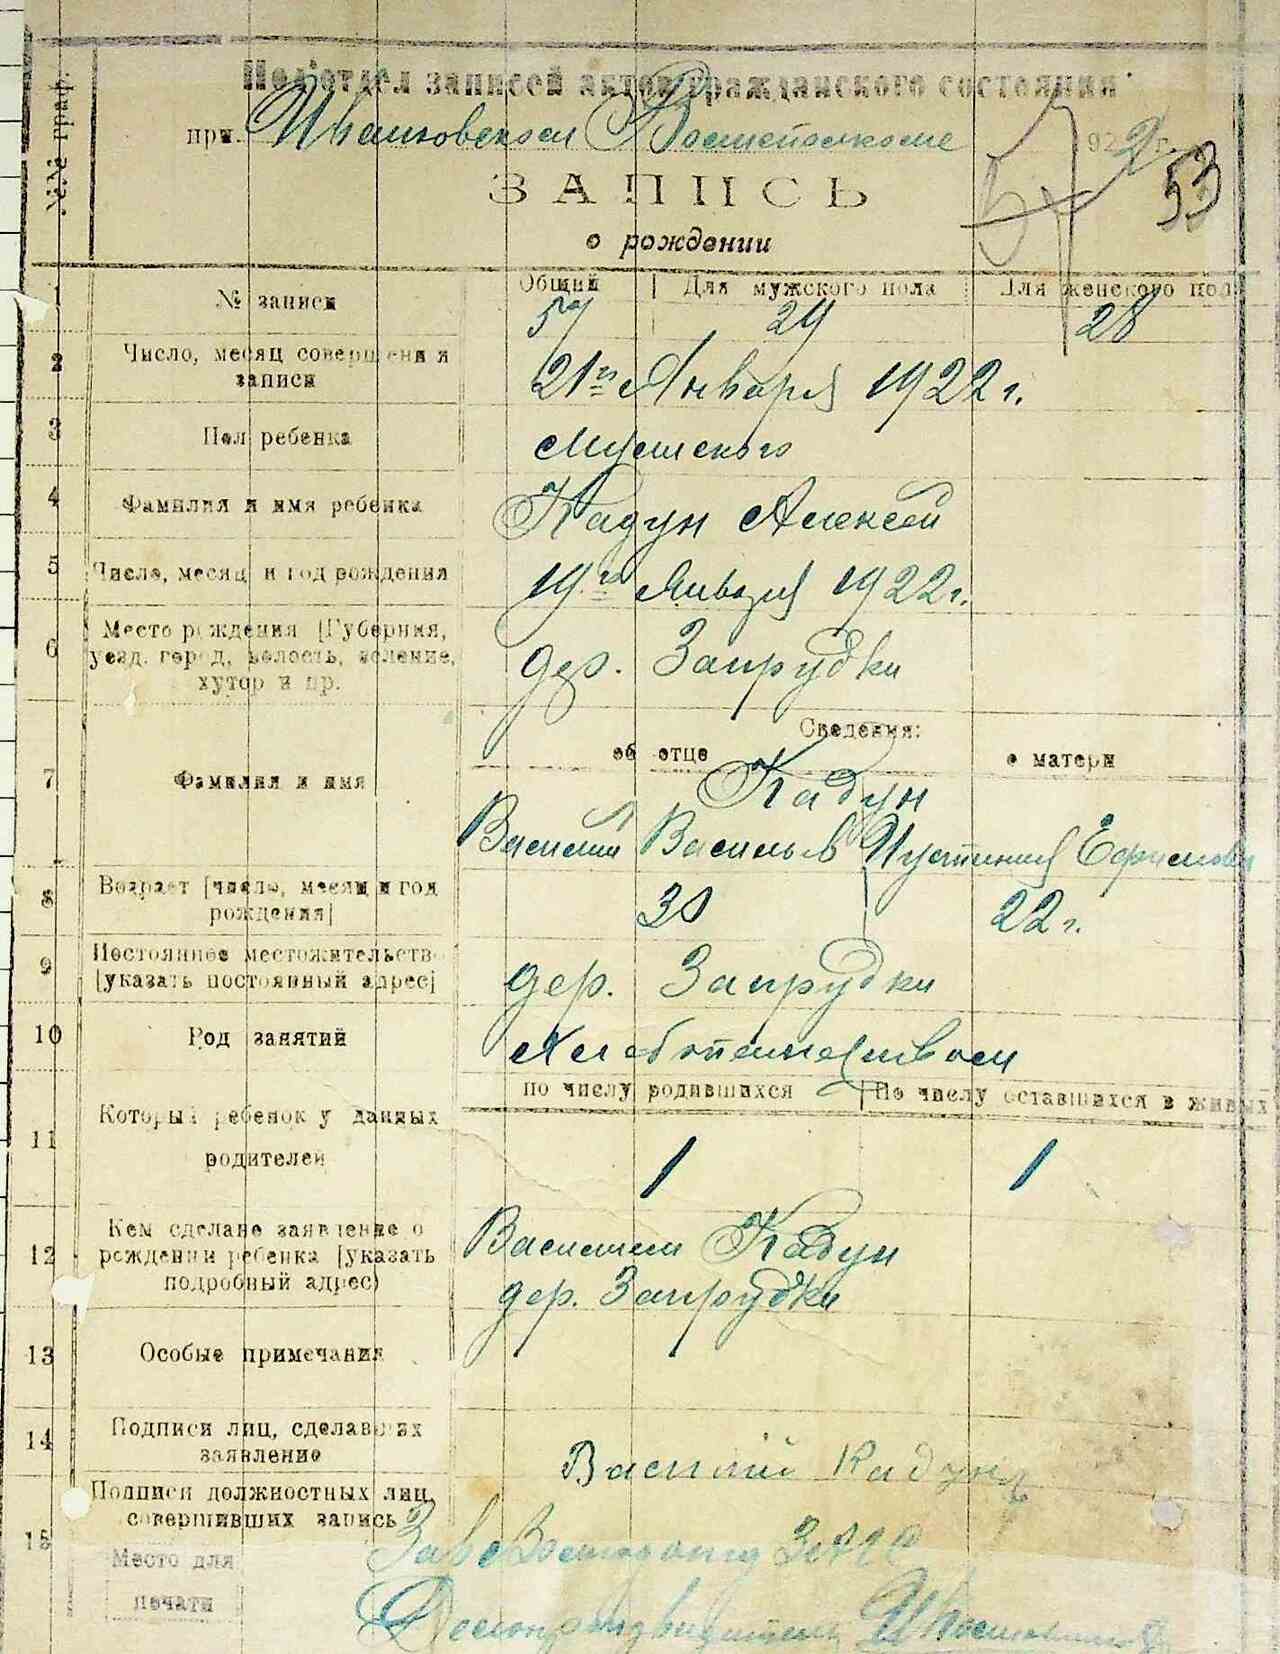 №№ граф.
Подотдел записей актов гражданского состояния
при Иваньковском Волисполкоме 1922 г.
57 53
ЗАПИСЬ
о рождении
1 № записи Общий Для мужского пола Для женского пола
57 29 28
2 Число, месяц совершения записи 21го Января 1922 г.
3 Пол ребенка Мужского
4 Фамилия и имя ребенка Кадун Алексей
5 Число, месяц и год рождения 19го Января 1922 г.
6 Место рождения [Губерния, уезд, город, волость, селение, хутор и пр. дер. Запрудки
Сведения:
об отце о матери
7 Фамилия и имя Кадун
Василий Васильев Иустиния Ефимова
8 Возраст [число, месяц и год рождения] 30 22 г.
9 Постоянное местожительство [указать постоянный адрес] дер. Запрудки
10 Род занятий Хлебопашеством
11 Который ребенок у данных родителей по числу родившихся По числу оставшихся в живых
1 1
12 Кем сделано заявление о рождении ребенка [указать подробный адрес) Василием Кадун
дер. Запрудки
13 Особые примечания
14 Подписи лиц, сделавших заявление Василий Кадун
15 Подписи должностных лиц, совершивших запись
Место для печати
Делопроизводитель